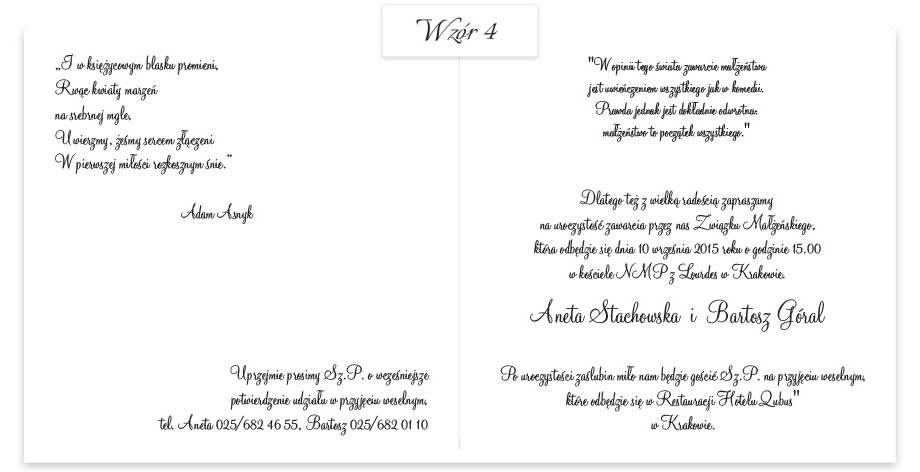 Wzór 4
„I w księżycowym blasku promieni,
Rwąc kwiaty marzeń
na srebrnej mgle,
Uwierzmy, żeśmy sercem złączeni
W pierwszej miłości rozkosznym śnie."
Adam Asnyk
Uprzejmie prosimy Sz.P. o wcześniejsze
potwierdzenie udziału w przyjęciu weselnym,
tel. Aneta 025/682 46 55, Bartosz 025/682 01 10
"W opinii tego świata zawarcie małżeństwa
jest uwieńczeniem wszystkiego jak w komedii.
Prawda jednak jest dokładnie odwrotna:
małżeństwo to początek wszystkiego."
Dlatego też z wielką radością zapraszamy
na uroczystość zawarcia przez nas Związku Małżeńskiego,
która odbędzie się dnia 10 września 2015 roku o godzinie 15.00
w kościele NMP z Lourdes w Krakowie.
Aneta Stachowska i Bartosz Góral
Po uroczystości zaślubin miło nam będzie gościć Sz.P. na przyjęciu weselnym,
które odbędzie się w Restauracji Hotelu Qubus"
w Krakowie.